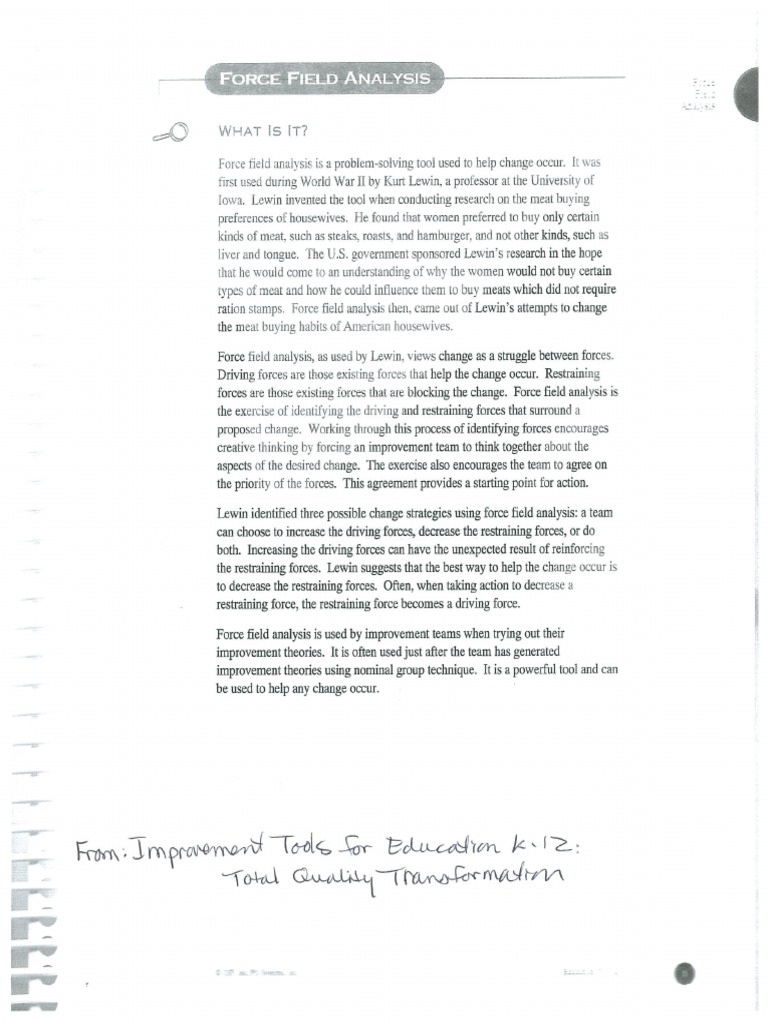 FORCE FIELD ANALYSIS
Force
Field
Analysis
WHAT IS IT?
Force field analysis is a problem-solving tool used to help change occur. It was
first used during World War II by Kurt Lewin, a professor at the University of
Iowa. Lewin invented the tool when conducting research on the meat buying
preferences of housewives. He found that women preferred to buy only certain
kinds of meat, such as steaks, roasts, and hamburger, and not other kinds, such as
liver and tongue. The U.S. government sponsored Lewin's research in the hope
that he would come to an understanding of why the women would not buy certain
types of meat and how he could influence them to buy meats which did not require
ration stamps. Force field analysis then, came out of Lewin's attempts to change
the meat buying habits of American housewives.
Force field analysis, as used by Lewin, views change as a struggle between forces.
Driving forces are those existing forces that help the change occur. Restraining
forces are those existing forces that are blocking the change. Force field analysis is
the exercise of identifying the driving and restraining forces that surround a
proposed change. Working through this process of identifying forces encourages
creative thinking by forcing an improvement team to think together about the
aspects of the desired change. The exercise also encourages the team to agree on
the priority of the forces. This agreement provides a starting point for action.
Lewin identified three possible change strategies using force field analysis: a team
can choose to increase the driving forces, decrease the restraining forces, or do
both. Increasing the driving forces can have the unexpected result of reinforcing
the restraining forces. Lewin suggests that the best way to help the change occur is
to decrease the restraining forces. Often, when taking action to decrease a
restraining force, the restraining force becomes a driving force.
Force field analysis is used by improvement teams when trying out their
improvement theories. It is often used just after the team has generated
improvement theories using nominal group technique. It is a powerful tool and can
be used to help any change occur.
From: Improvement Tools for Education K-12:
Total Quality Transformation